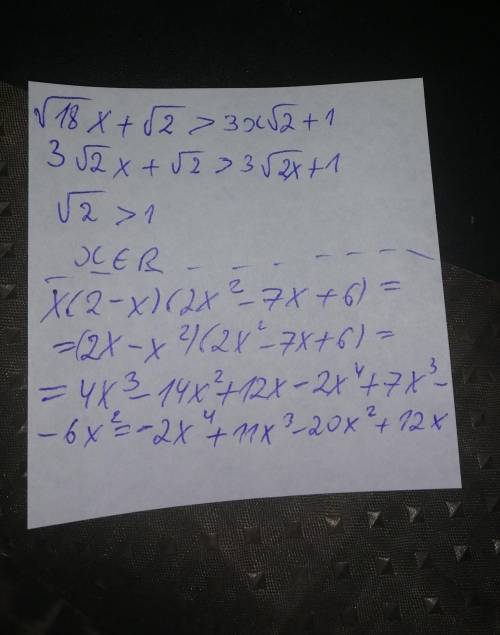 √18 x + √2 > 3x√2 + 1
3√2 x + √2 > 3√2x + 1
√2 > 1
x ∈ R
x(2-x)(2x² - 7x + 6) =
=(2x - x²)(2x² - 7x + 6) =
= 4x³ - 14x² + 12x - 2x⁴ + 7x³ -
- 6x² = -2x⁴ + 11x³ - 20x² + 12x